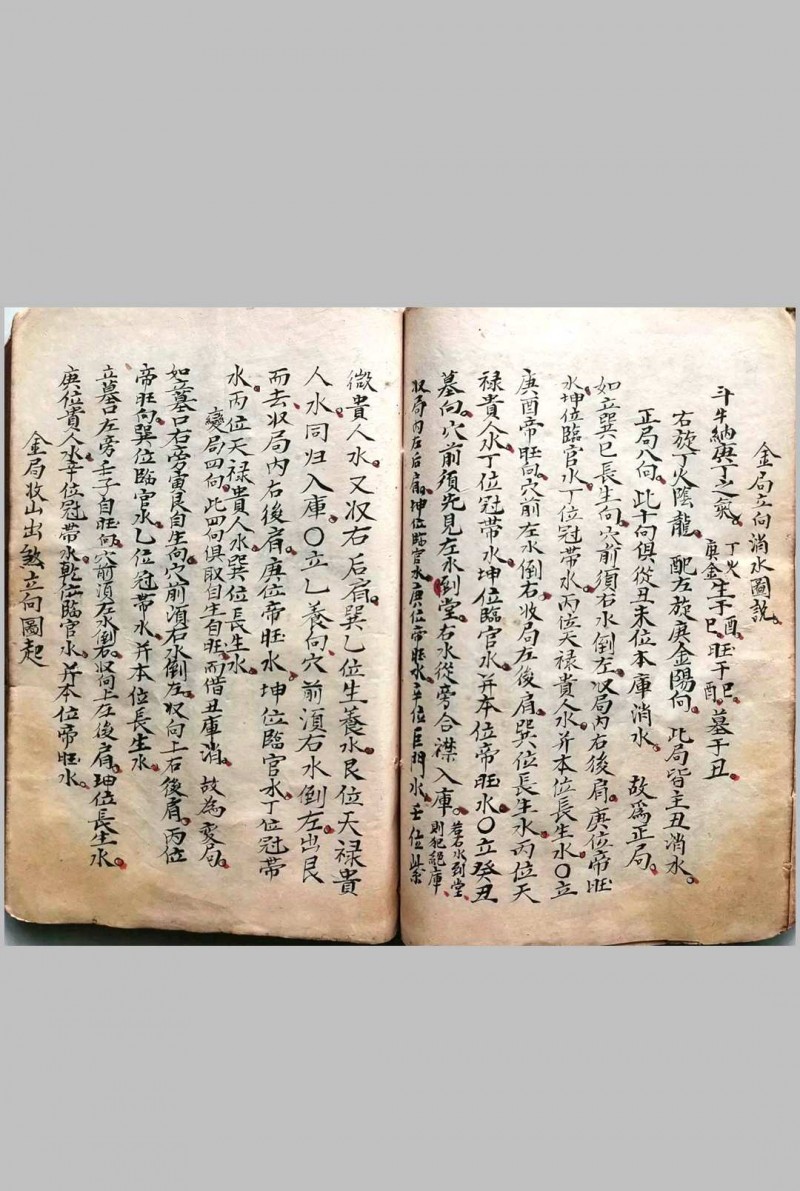 金局立向消水圖説
斗牛納庚丁之氣 丁火庚金生于酉巳旺于巳酉墓于丑
右旋丁火陰龍 配左旋庚金陽向 此局皆主丑消水
正局八向 此十句俱從丑未位本庫消水 故爲正局
如立巽巳長生向穴前須右水倒左収局内右後肩庚位帝旺
水坤位臨官水丁位冠帶水丙位天禄貴人水并本位長生水〇立
庚酉帝旺向穴前左水倒右收局左後肩巽位長生水丙位天
禄貴人水丁位冠帶水坤位臨官水并本位帝旺水〇立癸丑
墓向穴前须先見左水到堂右水從旁合襟入庫若右水到堂則犯
収局内左后肩坤位臨官水庚位帝旺水辛位巨門水壬位紫
微貴人水又収右后肩巽乙位生養水艮位天禄貴
人水同归入庫〇立乙養向穴前須右水倒左出艮
而去収局内右後肩庚位帝旺水坤位臨官水丁位冠帶
水丙位天禄貴人水巽位長生水
變局四向此四向俱取自生自旺而借丑庫消 故為変局
如立墓口右旁寅艮自生向穴前須右水倒左収向上右後肩丙位
帝旺向巽位臨官水乙位冠帶水并本位長生水
立墓口左旁壬子自旺向穴前須左水倒右収向上左後肩坤位長生水
庚位貴人水辛位冠帶水乾位臨官水并本位帝旺水
金局收山出煞立向圖起